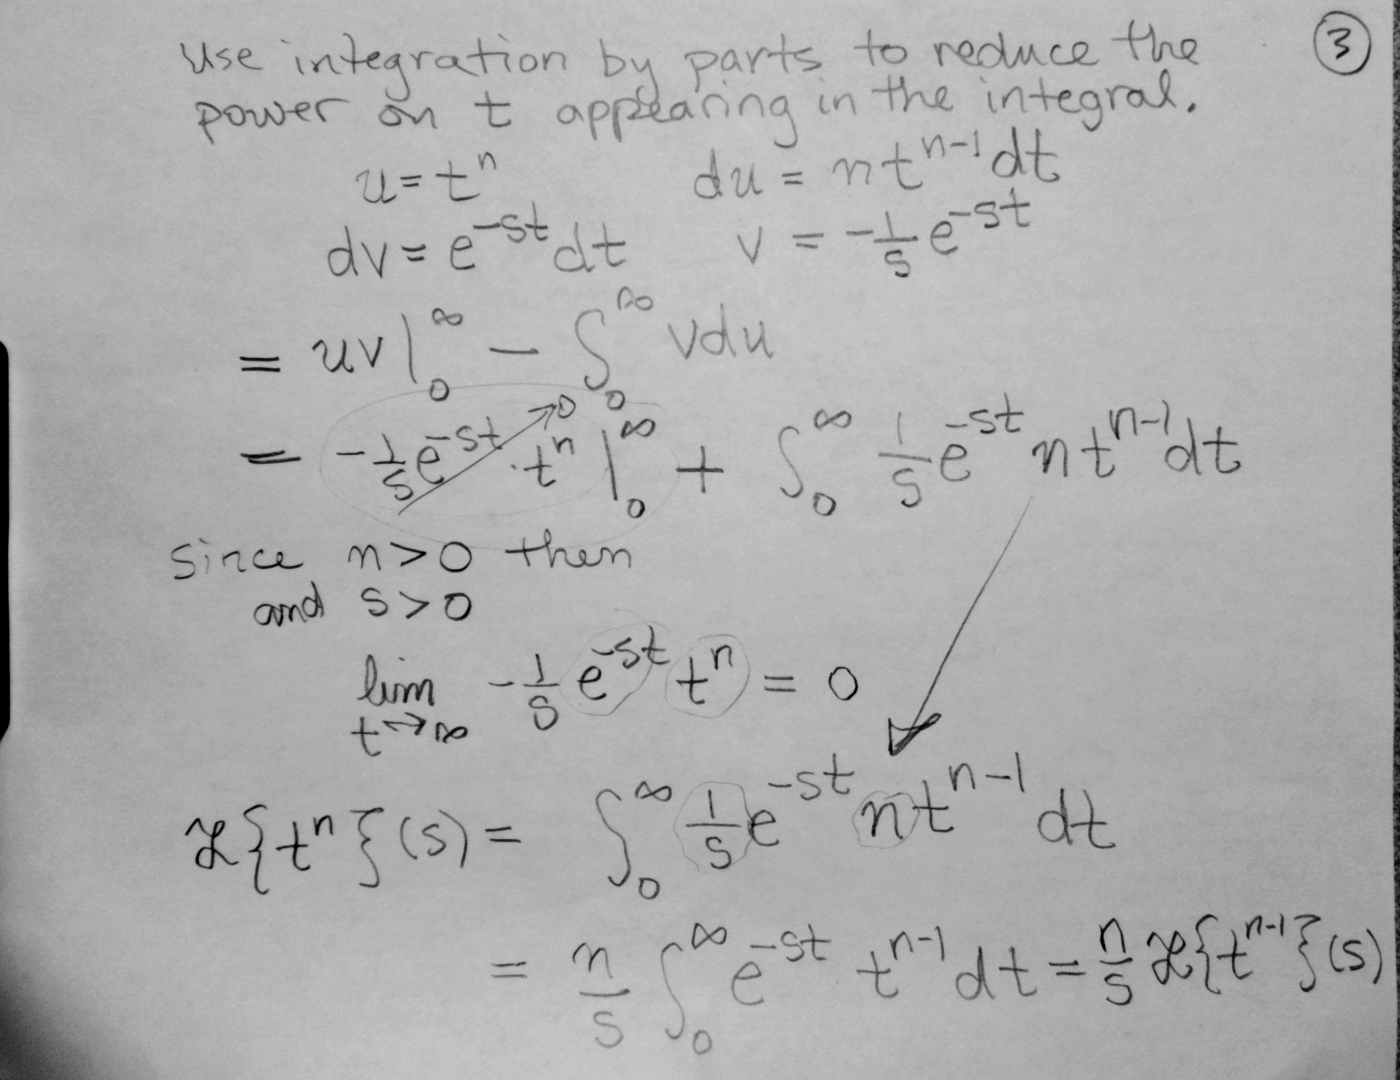 ③
Use integration by parts to reduce the
power on t appearing in the integral.
u = tⁿ du = n tⁿ⁻¹ dt
dv = e^{-st} dt v = -1/s e^{-st}
= uv |₀^∞ - ∫₀^∞ v du
= -1/s e^{-st} · tⁿ |₀^∞ → 0 + ∫₀^∞ 1/s e^{-st} n tⁿ⁻¹ dt
since n > 0 then
and s > 0
lim t→∞ -1/s e^{-st} tⁿ = 0
ℒ{tⁿ}(s) = ∫₀^∞ 1/s e^{-st} n tⁿ⁻¹ dt
= n/s ∫₀^∞ e^{-st} tⁿ⁻¹ dt = n/s ℒ{tⁿ⁻¹}(s)